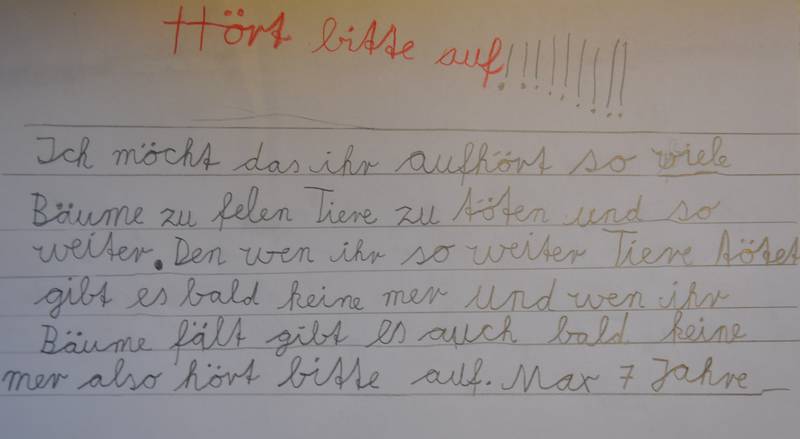 Hört bitte auf!!!!!!!!!
Ich möcht das ihr aufhört so viele
Bäume zu felen Tiere zu töten und so
weiter. Den wen ihr so weiter Tiere tötet
gibt es bald keine mer und wen ihr
Bäume fält gibt es auch bald keine
mer also hört bitte auf. Max 7 Jahre